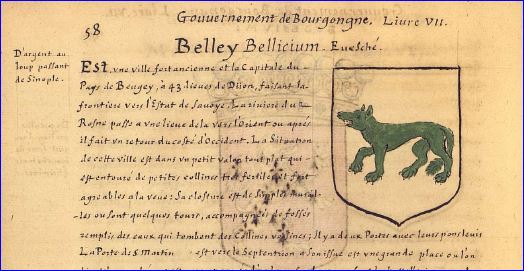 58
Gouuernement de Bourgongne. Liure VII.
Belley Bellicium. Euesché.
D'argent au
loup passant
de Sinople.
Est, vne ville fort ancienne et la Capitale du
Pays de Beugey, à 43 lieues de Dijon, faisant la
frontiere vers l'Estat de Sauoye. La riuiere du
Rosne passe a vne lieue de la vers l'Orient ou après
il fait vn retour du costé d'Occident. La Situation
de cette ville est dans vn petit valon tout plat qui
est entouré de petites collines tres fertilles et fort
agreables a la veue: Sa closture est de simples murail-
les ou sont quelques tours, accompagnées de fossés
remplis des eaux qui tombent des Collines voisines; Il y a deux Portes avec leurs ponsleuis
La Porte de St Martin est vers le Septention a son issue est vne grande place ou l'on